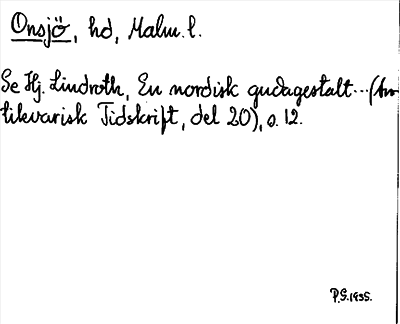 Onsjö, hd, Malm. l.
Se Hj. Lindroth, En nordisk gudagestalt... (An-
tikvarisk Tidskrift, del 20), s. 12.
P.G. 1935.